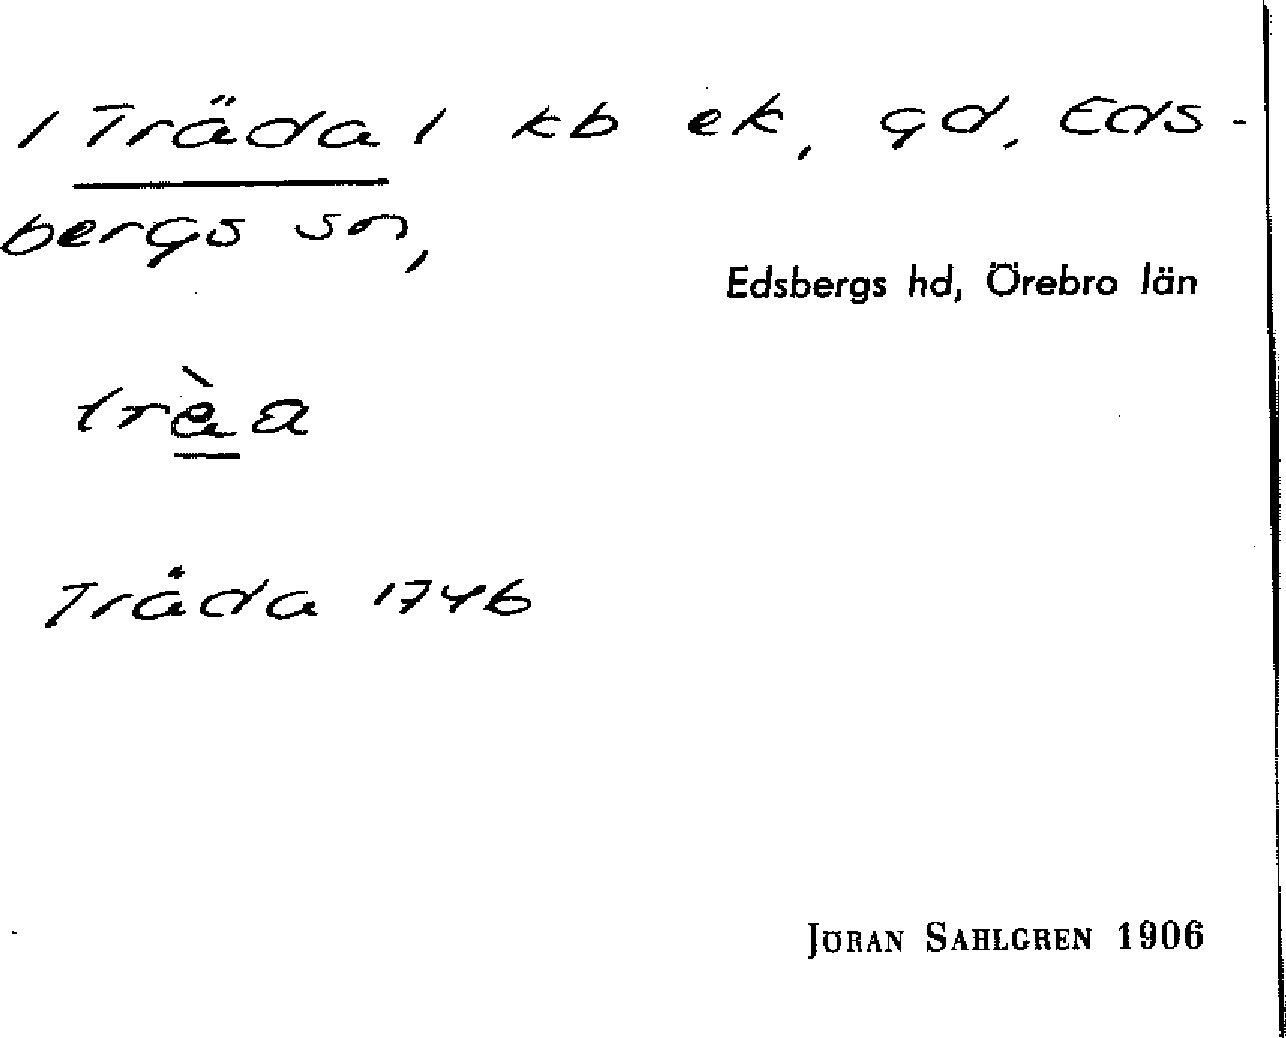 / Träda / kb ek, gd, Eds-
bergs sn,
Edsbergs hd, Örebro län
trèa
Tråda 1746
JÖRAN SAHLGREN 1906